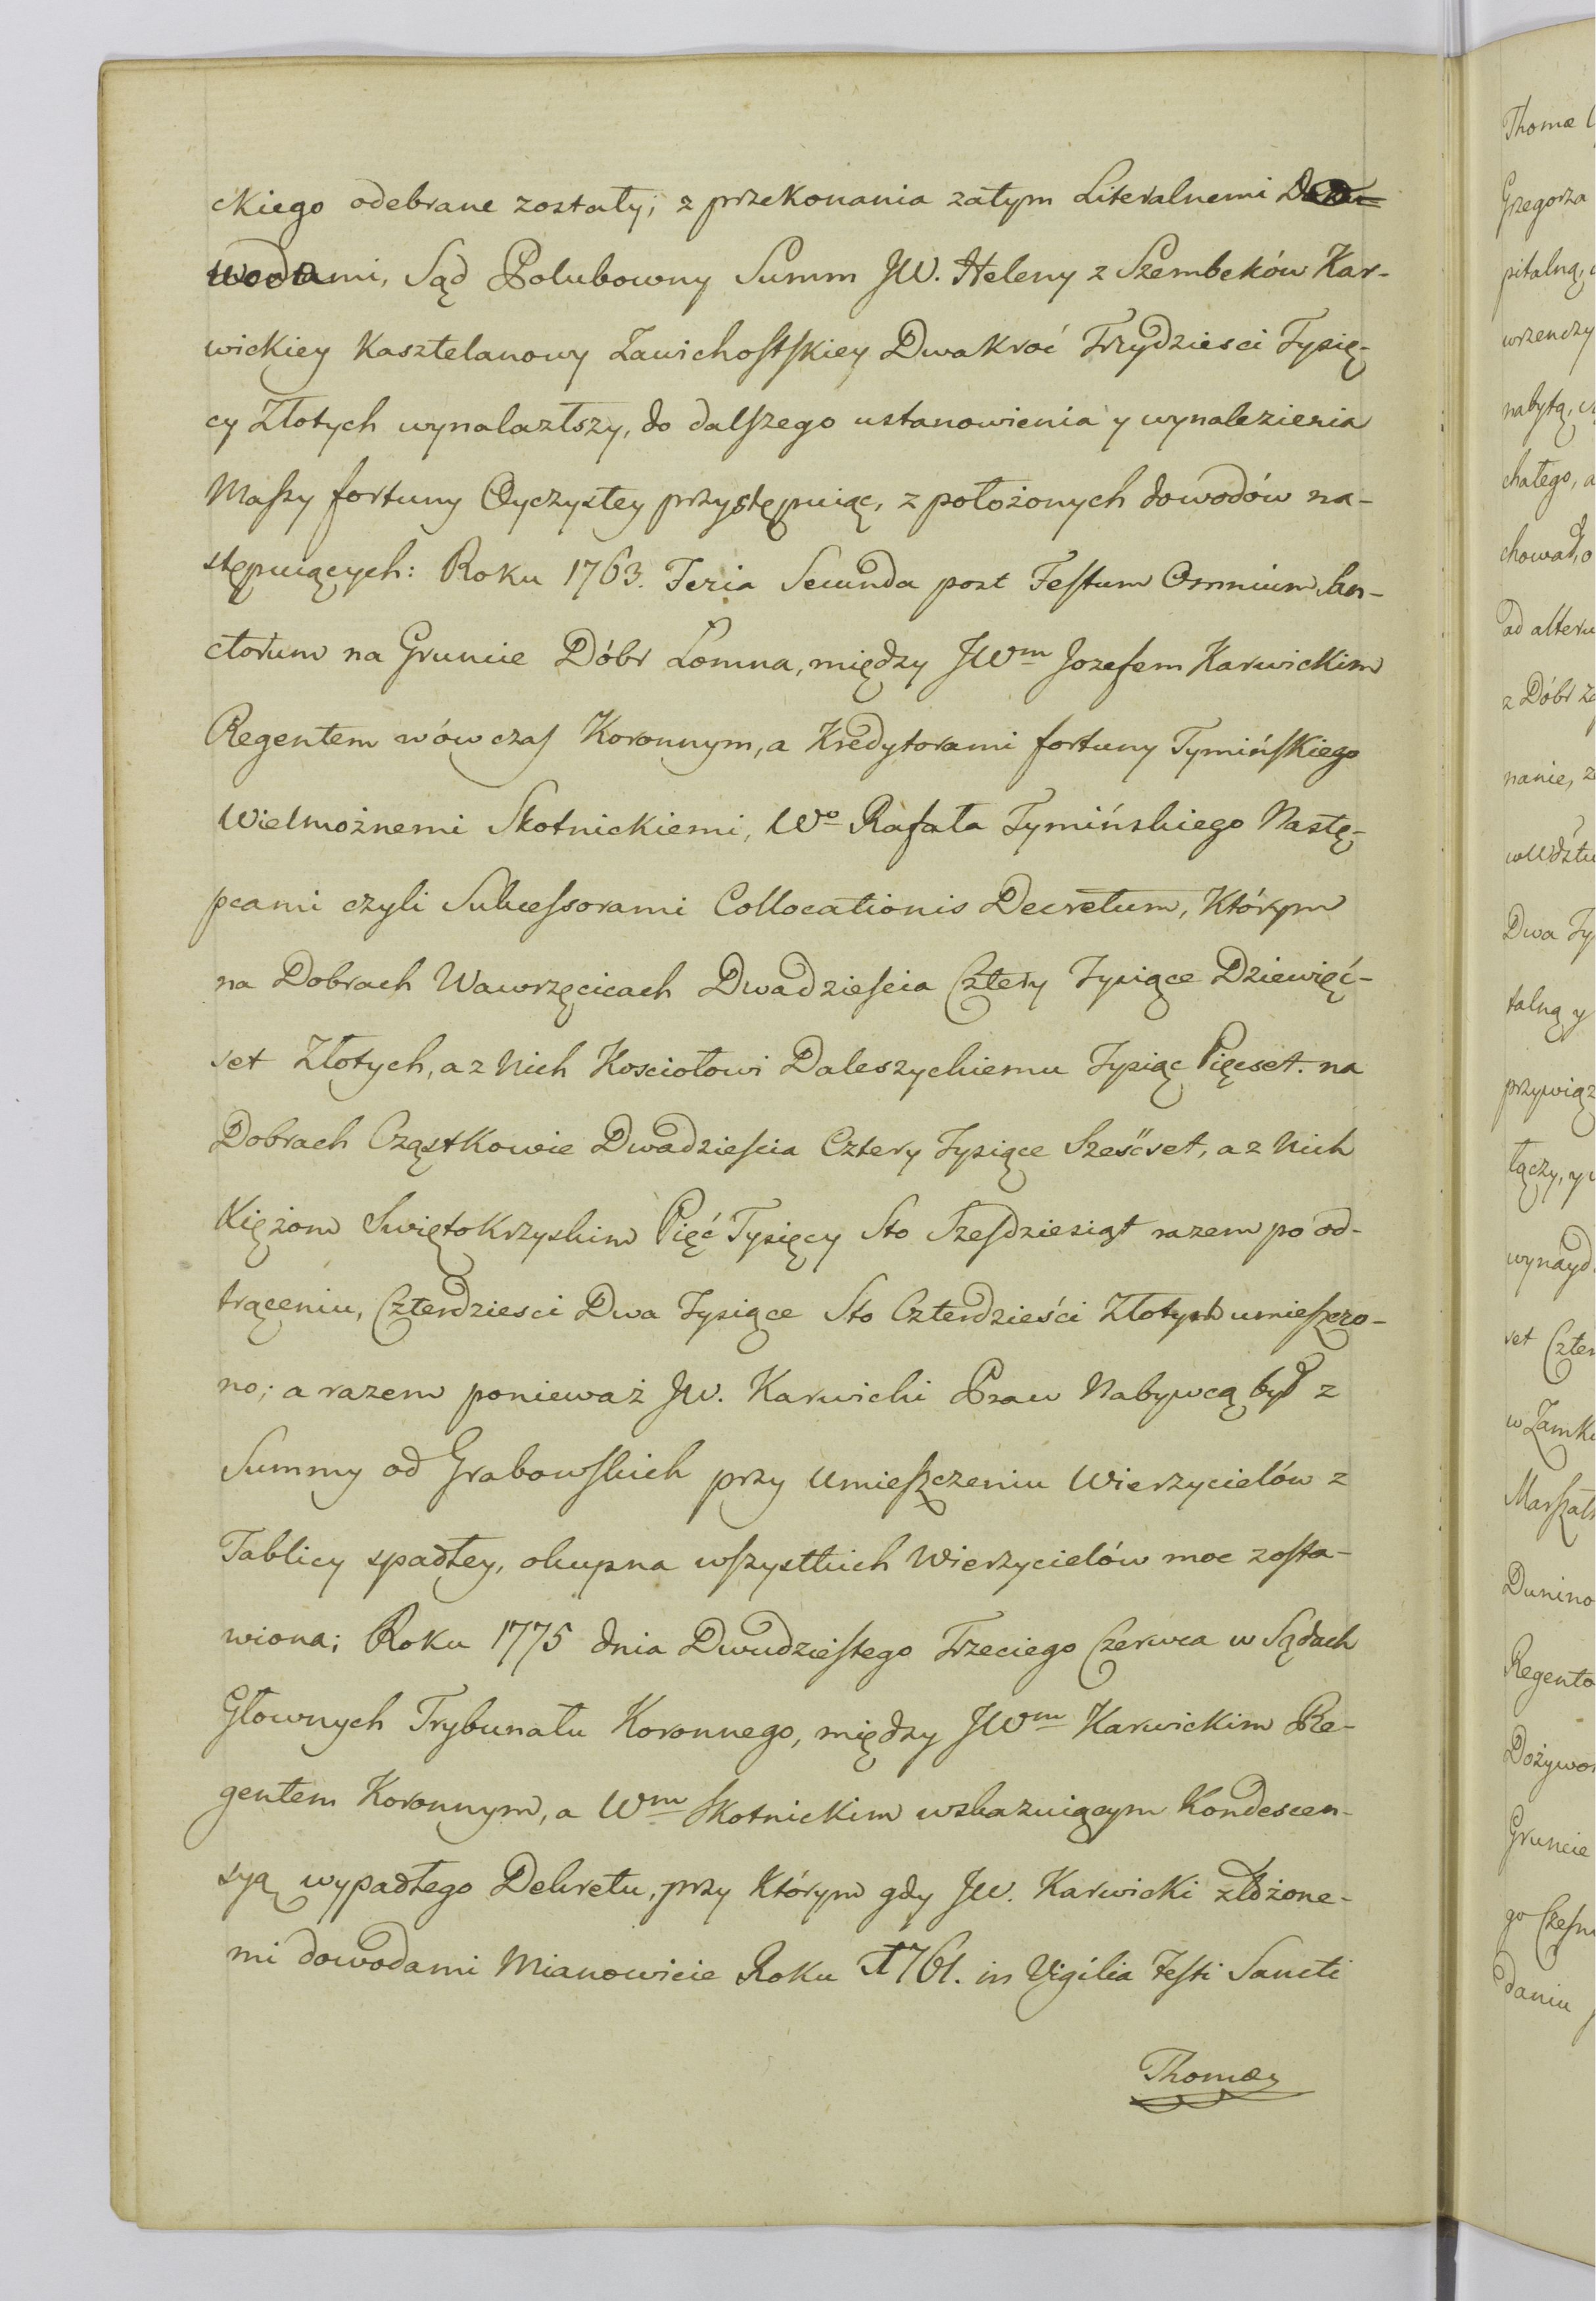 ckiego odebrane zostały; z przekonania zatym Literalnemi Do-
wodami, Sąd Polubowny Summ JW. Heleny z Szembeków Kar-
wickiey Kasztelanowy Zawichostskiey Dwakroć Trzydziesci Tysię-
cy Złotych wynalazłszy, do dalszego ustanowienia y wynalezienia
Massy fortuny Oyczystey przystępuiąc, z położonych dowodów na-
stępuiących: Roku 1763. Feria Secunda post Festum Omnium San-
ctorum na Gruncie Dóbr Łomna, między JWm Jozefem Karwickim
Regentem wówczas Koronnym, a Kredytorami fortuny Tymińskiego
Wielmożnemi Skotnickiemi, Wo Rafała Tymińskiego Nastę-
pcami czyli Sukcessorami Collocationis Decretum, Którym
na Dobrach Wawrzęcicach Dwadziescia Cztery Tysiące Dziewięć-
set Złotych, a z Nich Kosciołowi Daleszyckiemu Tysiąc Pięcset. na
Dobrach Cząstkowie Dwadziescia Cztery Tysiące Sześćset, a z Nich
Xiężom Swiętokrzyskim Pięć Tysięcy Sto Szesdziesiąt razem po od-
trąceniu, Czterdziesci Dwa Tysiące Sto Czterdzieści Złotych umieszczo-
no; a razem ponieważ JW. Karwicki Praw Nabywcą był z
Summy od Grabowskich przy Umieszczeniu Wierzycielów z
Tablicy spadłey, okupna wszystkich Wierzycielów moc zosta-
wiona; Roku 1775 dnia Dwudziestego Trzeciego Czerwca w Sądach
Głownych Trybunału Koronnego, między JWm Karwickim Re-
gentem Koronnym, a Wm Skotnickim wskazuiącym Kondescen-
syą wypadłego Dekretu, przy Którym gdy JW. Karwicki złożone-
mi dowodami Mianowicie Roku 1761. in Vigilia Festi Sancti
Thomæ
Thomæ
Grzegorza
pitalną,
wrzenczy
nabytą,
chałego, a
chował, o
ad alteru
z Dóbr
nanie,
Dwa Ty
talną y
przywiąz
łączy, y
wynayd
set Czter
w Zamku
Marszałk
Dunino
Regento
Dożywot
Gruncie
go Czesn
daniu